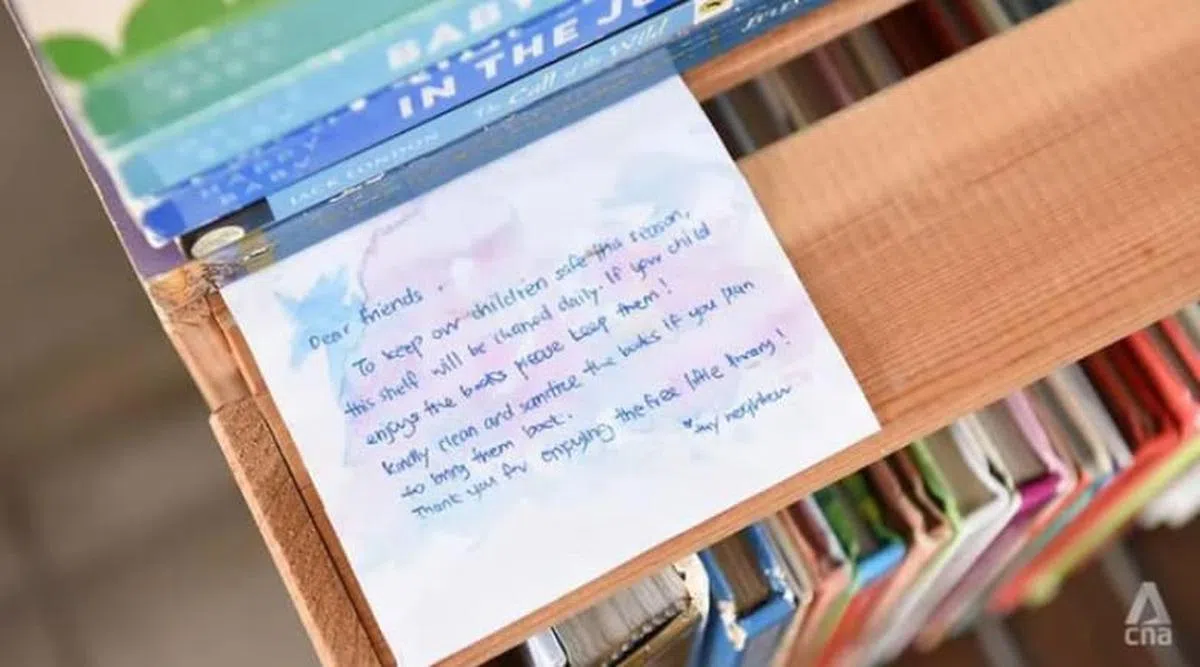 BABY
IN THE
JACK LONDON The Call of the Wild
Dear friends,
To keep our children safe this season,
this shelf will be cleaned daily. If your child
enjoys the books please keep them!
Kindly clean and sanitize the books if you plan
to bring them back.
Thank you for enjoying the free little library!
cna